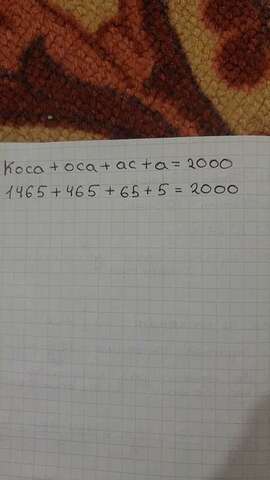 Коса + оса + ас + а = 2000
1465 + 465 + 65 + 5 = 2000